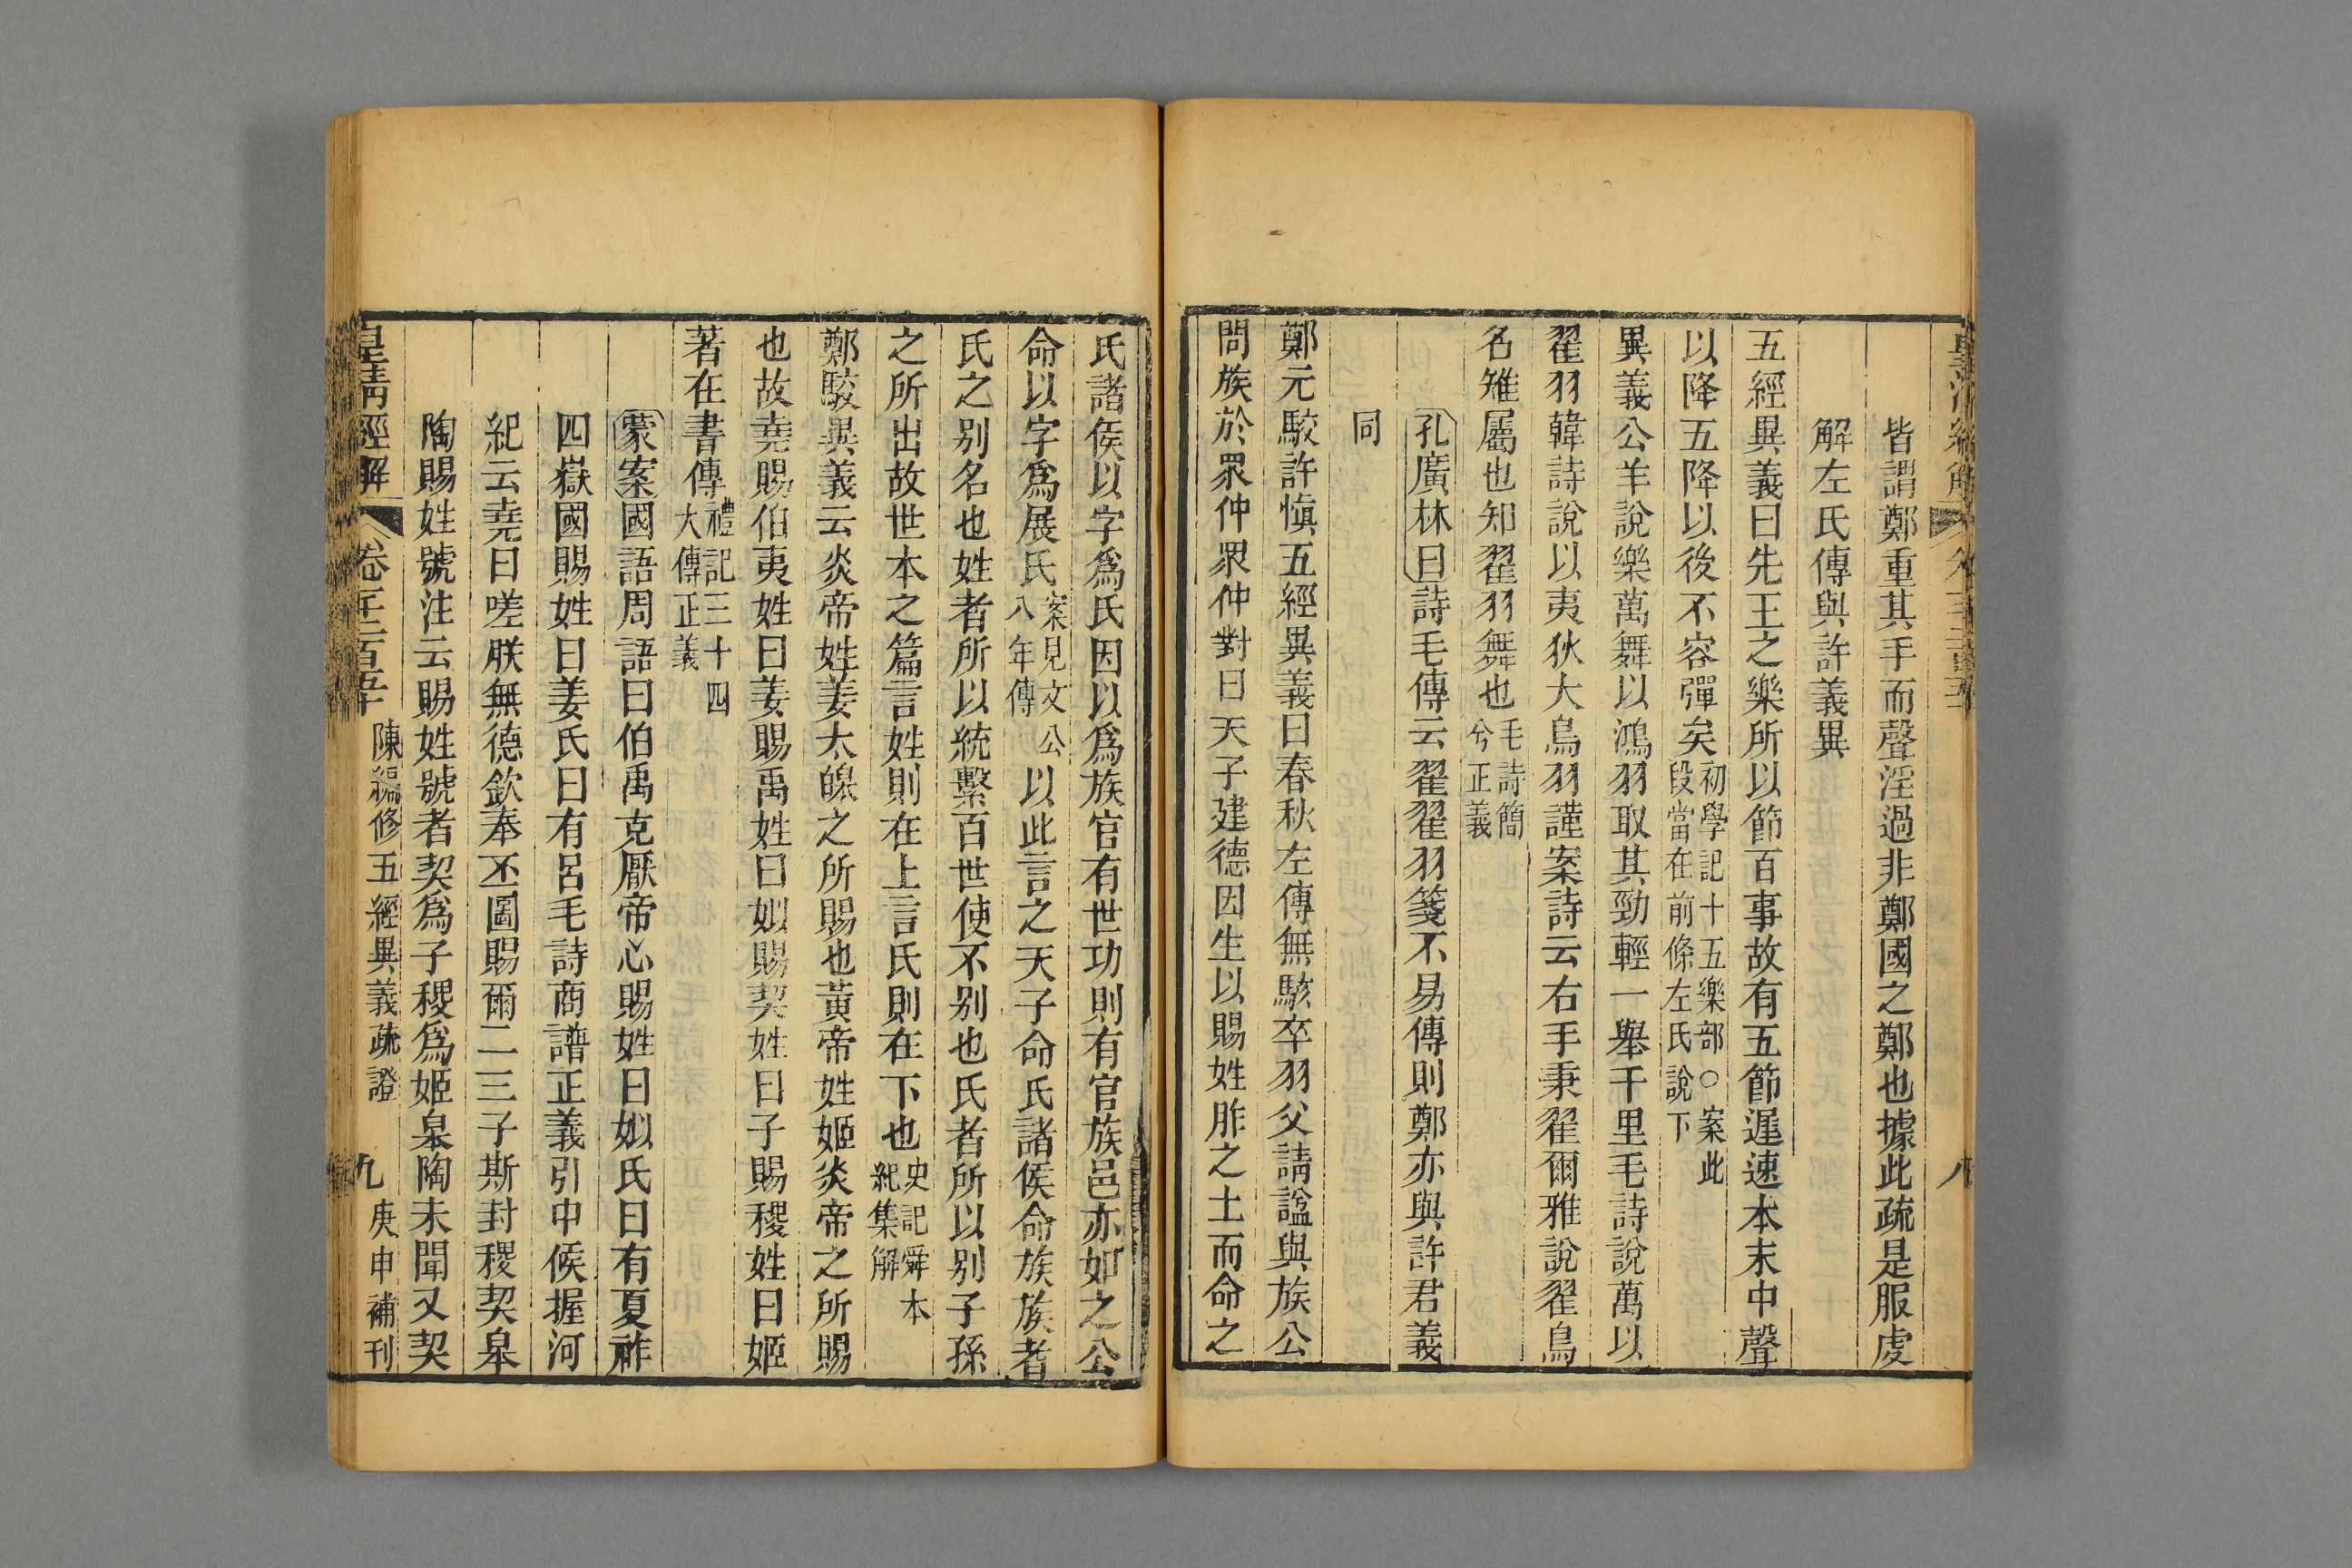 皆謂鄭重其手而聲淫過非鄭國之鄭也據此疏是服虔
解左氏傳與許義異
五經異義曰先王之樂所以節百事故有五節遲速本末中聲
以降五降以後不容彈矣初學記十五樂部○案此段當在前條左氏說下
異義公羊說樂萬舞以鴻羽取其勁輕一舉千里毛詩說萬以
翟羽韓詩說以夷狄大鳥羽謹案詩云右手秉翟爾雅說翟鳥
名雉屬也知翟羽舞也毛詩簡兮正義
孔廣林曰詩毛傳云翟翟羽箋不易傳則鄭亦與許君義
同
鄭元駮許愼五經異義曰春秋左傳無駭卒羽父請諡與族公
問族於眾仲眾仲對曰天子建德因生以賜姓胙之土而命之
氏諸侯以字爲氏因以爲族官有世功則有官族邑亦如之公
命以字爲展氏案見文公八年傳以此言之天子命氏諸侯命族族者
氏之别名也姓者所以統繫百世使不别也氏者所以别子孫
之所出故世本之篇言姓則在上言氏則在下也史記舜本紀集解
鄭駮異義云炎帝姓姜太皞之所賜也黃帝姓姬炎帝之所賜
也故堯賜伯夷姓曰姜賜禹姓曰姒賜契姓曰子賜稷姓曰姬
著在書傳禮記三十四大傳正義
蒙案國語周語曰伯禹克厭帝心賜姓曰姒氏曰有夏祚
四嶽國賜姓曰姜氏曰有呂毛詩商譜正義引中候握河
紀云堯曰嗟朕無德欽奉丕圖賜爾二三子斯封稷契皋
陶賜姓號注云賜姓號者契爲子稷爲姬皋陶未聞又契
皇清經解 卷千二百五十 陳編修五經異義疏證 九 庚申補刊